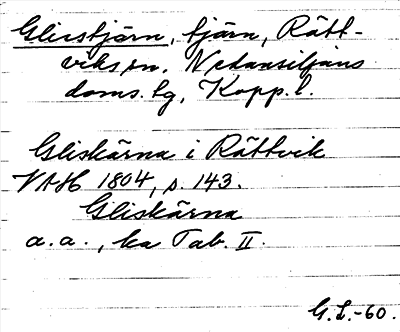 Glisstjärn, tjärn, Rätt-
viks sn. Nedansiljans
doms. tg, Kopp. l.
Gliskärna i Rättvik
VAH 1804, s. 143.
Gliskärna
a. a., ka Tab. II.
G.L.-60.